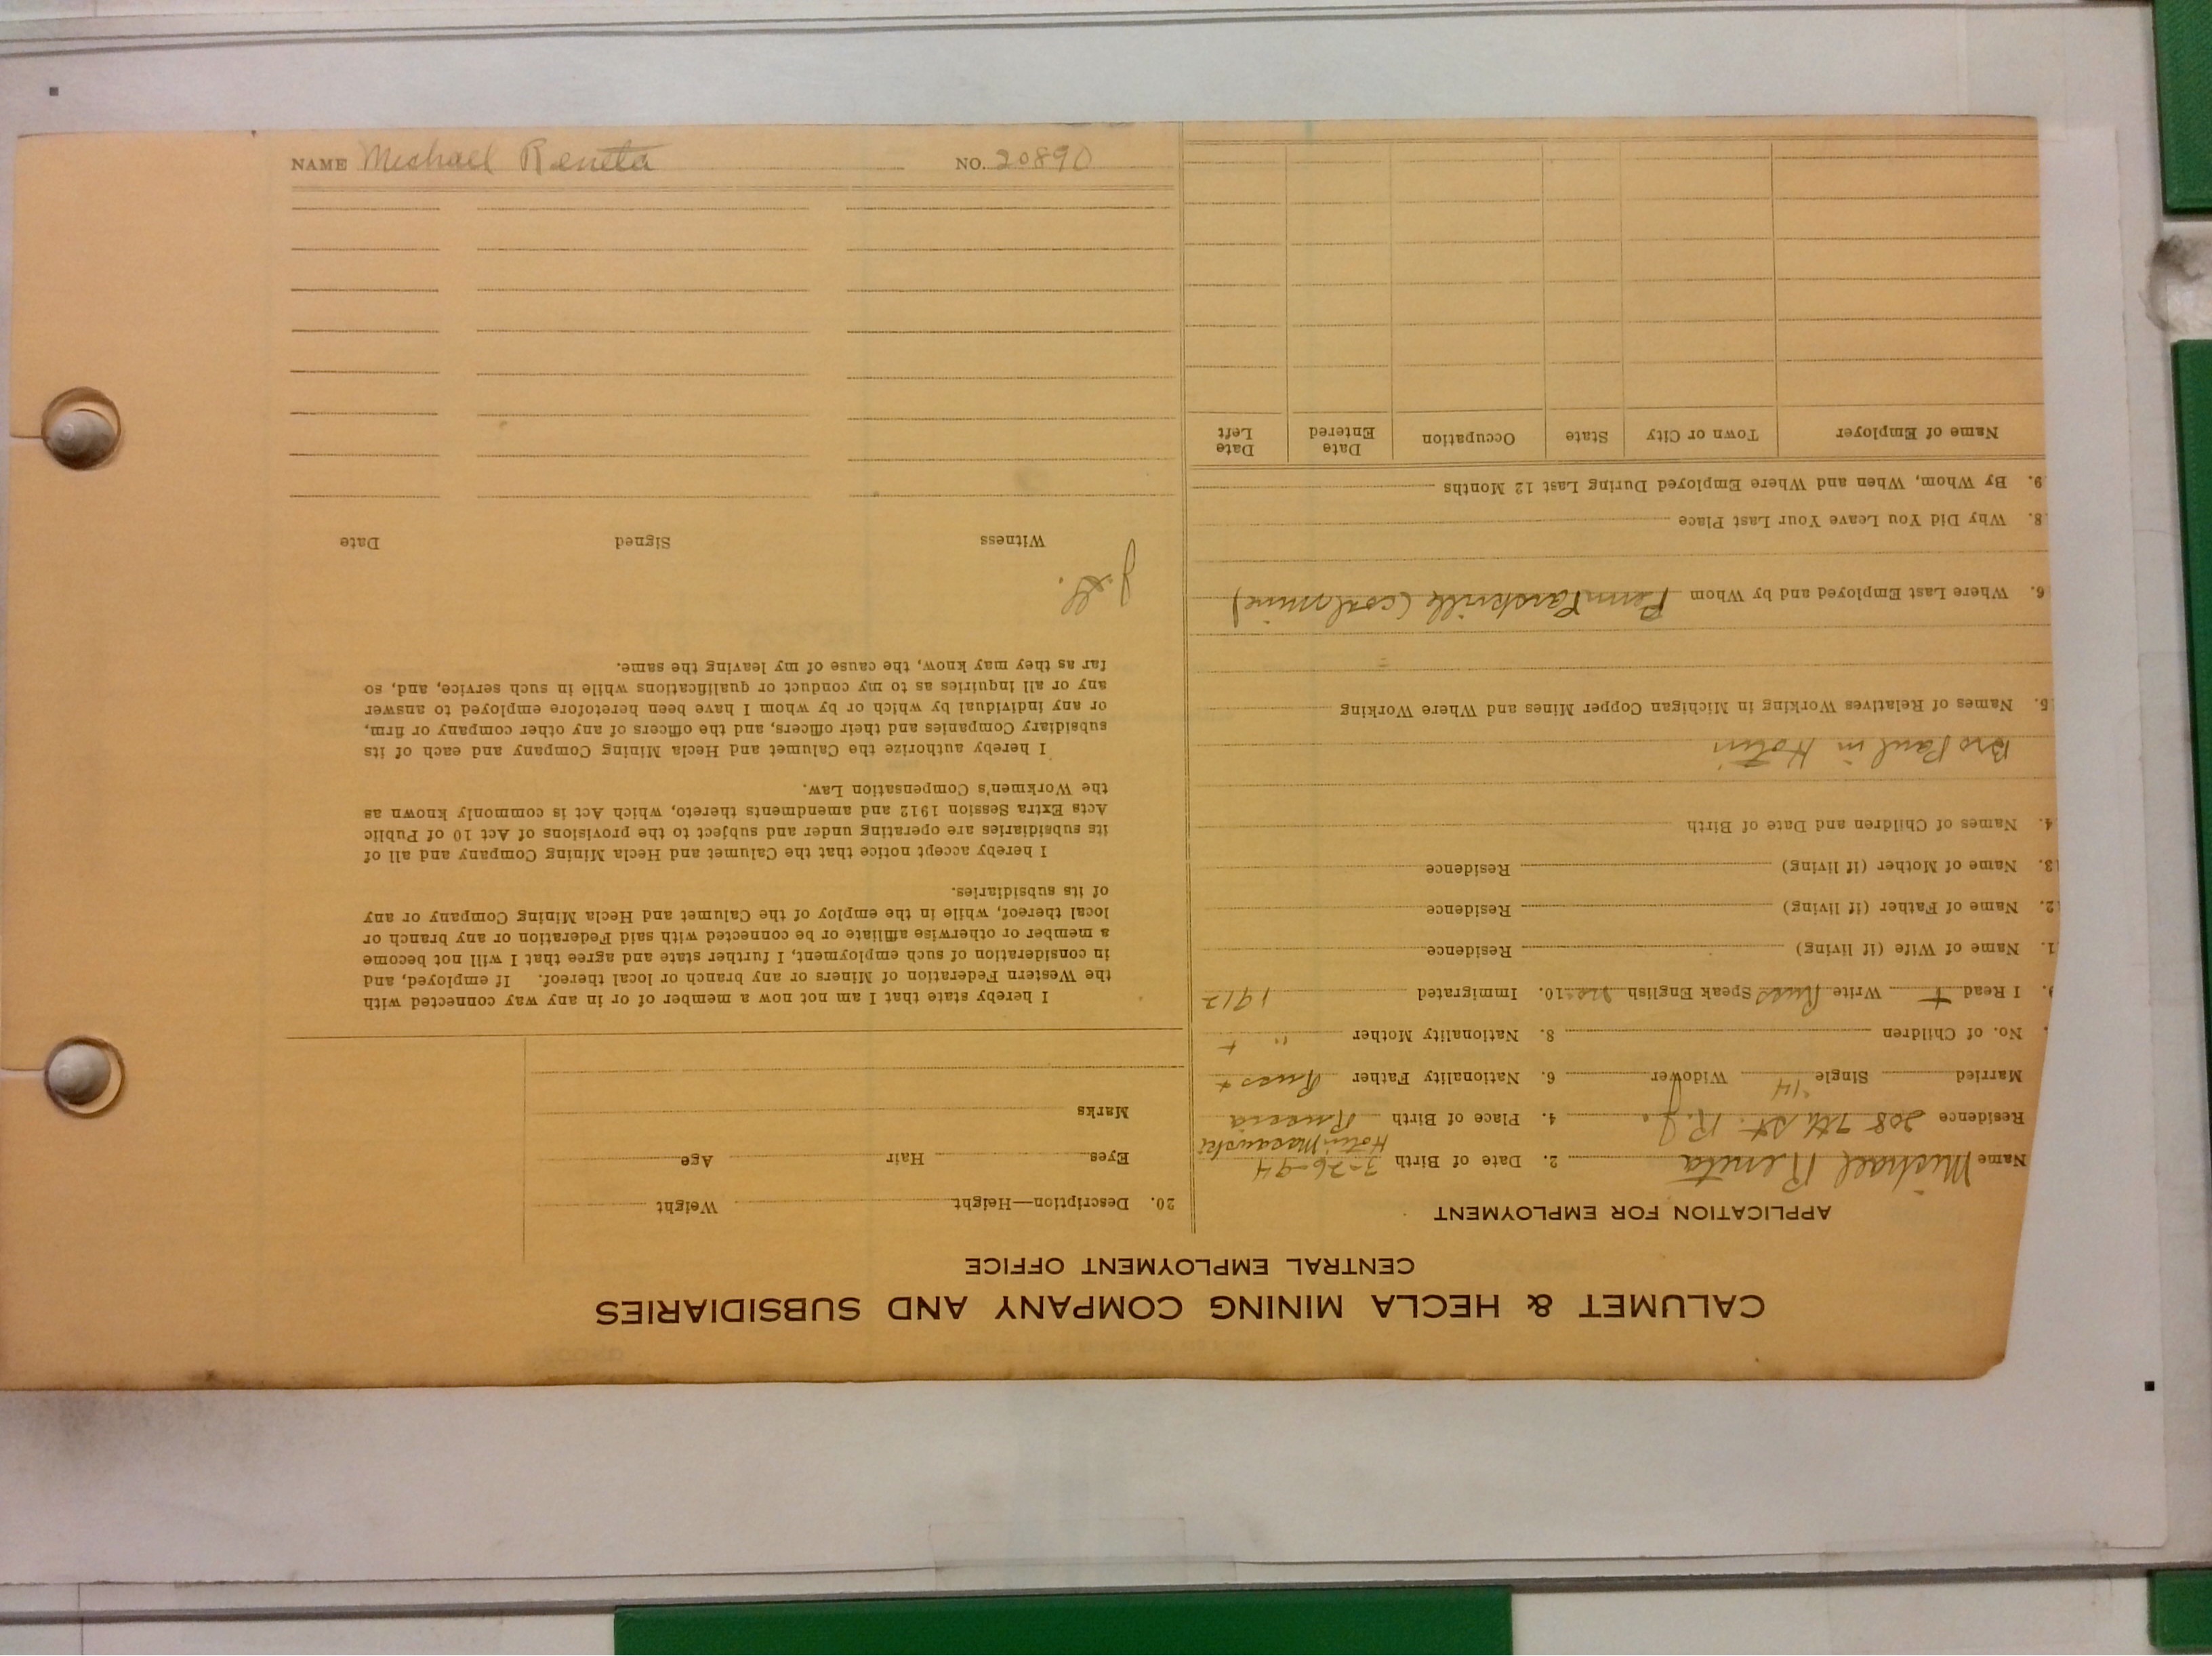 NAME Michael Reneta NO. 20890
CALUMET & HECLA MINING COMPANY AND SUBSIDIARIES
CENTRAL EMPLOYMENT OFFICE
APPLICATION FOR EMPLOYMENT
Name Michael Reneta 2. Date of Birth 3-26-94
Residence 208 7th St. R.J. 4. Place of Birth Russia
Married Single Widower 6. Nationality Father Russ +
'14
No. of Children 8. Nationality Mother " +
9. I Read + Write Russ Speak English 10. Immigrated 1912
1. Name of Wife (if living) Residence
12. Name of Father (if living) Residence
13. Name of Mother (if living) Residence
4. Names of Children and Date of Birth
Bro Paul in
5. Names of Relatives Working in Michigan Copper Mines and Where Working
6. Where Last Employed and by Whom Penn (coalmine)
8. Why Did You Leave Your Last Place
9. By Whom, When and Where Employed During Last 12 Months
Name of Employer Town or City State Occupation Date Entered Date Left
20. Description—Height Weight
Eyes Hair Age
Marks
I hereby state that I am not now a member of or in any way connected with
the Western Federation of Miners or any branch or local thereof. If employed, and
in consideration of such employment, I further state and agree that I will not become
a member or otherwise affiliate or be connected with said Federation or any branch or
local thereof, while in the employ of the Calumet and Hecla Mining Company or any
of its subsidiaries.
I hereby accept notice that the Calumet and Hecla Mining Company and all of
its subsidiaries are operating under and subject to the provisions of Act 10 of Public
Acts Extra Session 1912 and amendments thereto, which Act is commonly known as
the Workmen's Compensation Law.
I hereby authorize the Calumet and Hecla Mining Company and each of its
subsidiary Companies and their officers, and the officers of any other company or firm,
or any individual by which or by whom I have been heretofore employed to answer
any or all inquiries as to my conduct or qualifications while in such service, and, so
far as they may know, the cause of my leaving the same.
Witness Signed Date